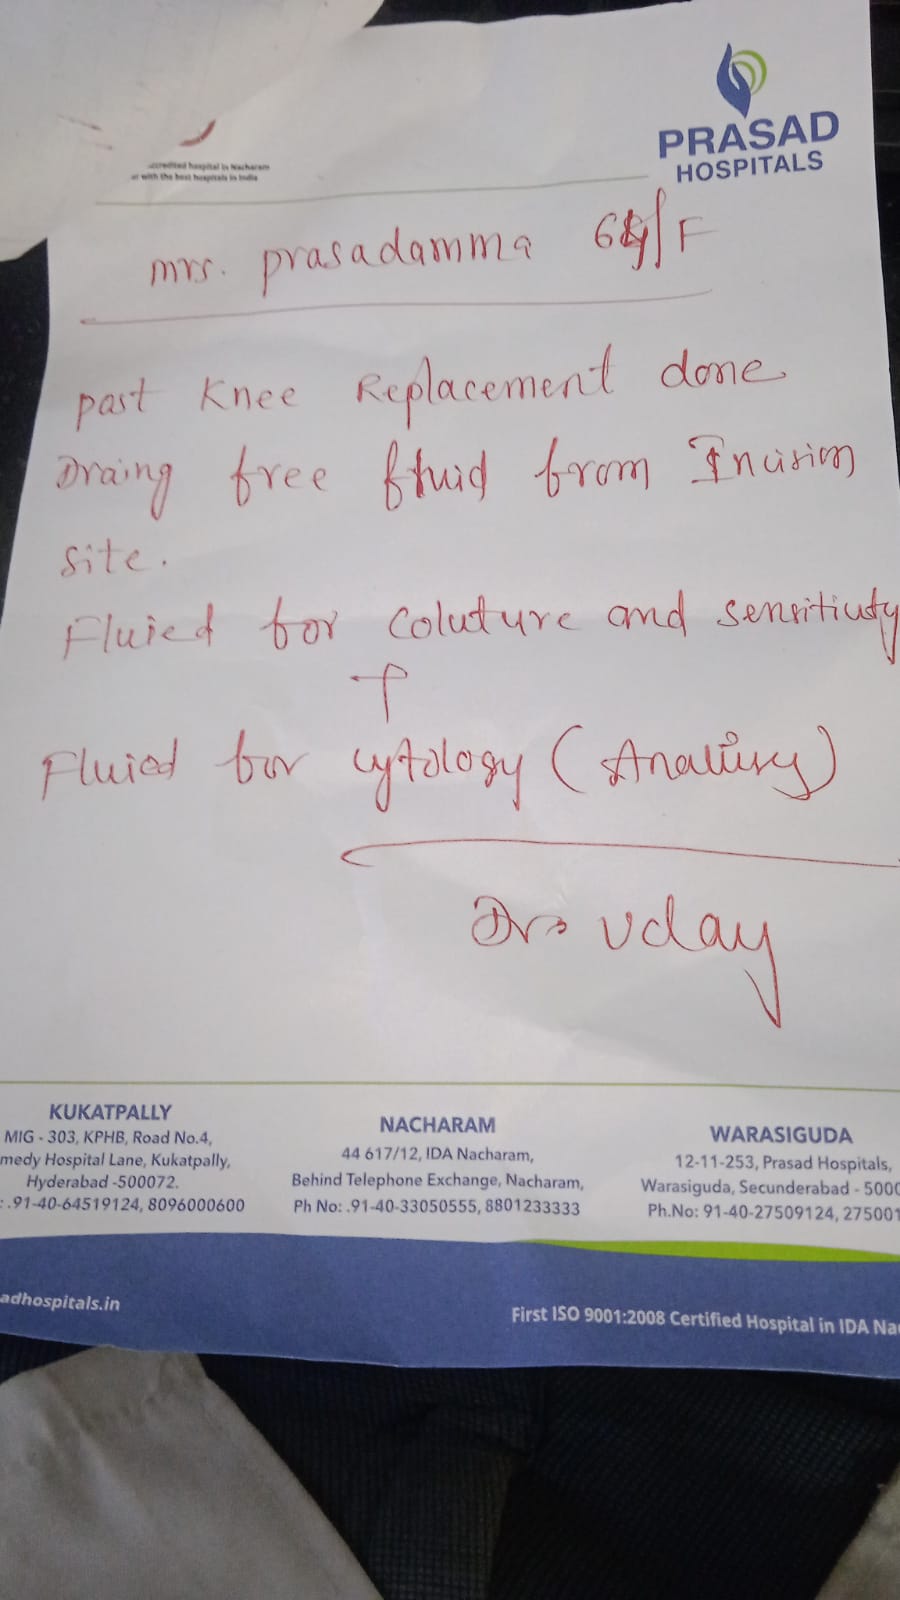 PRASAD
HOSPITALS
ccredited hospital in Nacharam
with the best hospitals in India
mrs. prasadamma /F
past Knee Replacement done
Draing free fluid from Incision
site.
Fluied for Coluture and sensitivty
Fluied for cytology (Analisy)
Dr. Uday
KUKATPALLY
MIG - 303, KPHB, Road No.4,
medy Hospital Lane, Kukatpally,
Hyderabad -500072.
: .91-40-64519124, 8096000600
NACHARAM
44 617/12, IDA Nacharam,
Behind Telephone Exchange, Nacharam,
Ph No: .91-40-33050555, 8801233333
WARASIGUDA
12-11-253, Prasad Hospitals,
Warasiguda, Secunderabad - 500
Ph.No: 91-40-27509124, 275001
adhospitals.in
First ISO 9001:2008 Certified Hospital in IDA Na